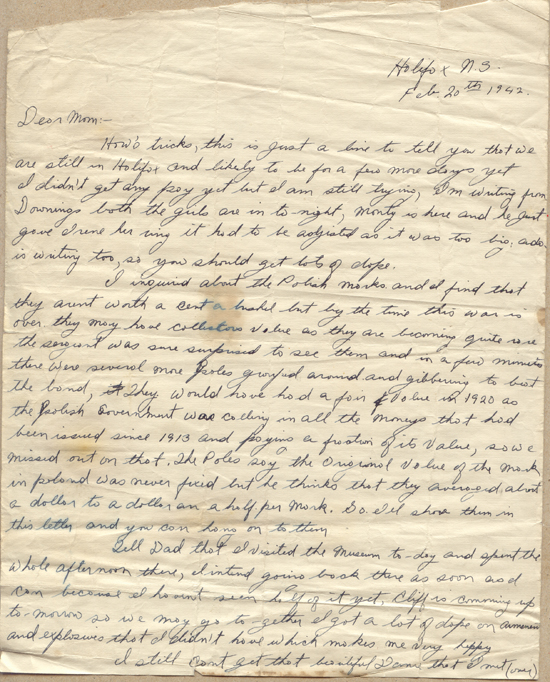 Halifax N.S.
Feb 20th, 1942.
Dear Mom:-
How's tricks, this is just a line to tell you that we
are still in Halifax and likely to be for a few more days yet
I didn't get any pay yet but I am still trying, I'm writing from
Downings both the girls are in to night, Monty is here and he just
gave Irene her ring it had to be adjusted as it was too big; ada
is writing too, so you should get lots of dope.
I inquired about the Polish marks and I find that
they arent worth a cent a bushel but by the time this war is
over they may have collectors value as they are becoming quite rare
the sergeant was sure surprised to see them and in a few minutes
there were several more Poles grouped around and gibbering to beat
the band, They would have had a fair value in 1920 as
the Polish Government was calling in all the moneys that had
been issued since 1913 and paying a fraction of its value, so we
missed out on that. The Poles say the Original Value of the Mark
in poland was never fixed but he thinks that they averaged about
a dollar to a dollar an a half per Mark. So I'll shove them in
this letter and you can hang on to them
Tell Dad that I visited the Museum to-day and spent the
whole afternoon there, I intend going back there as soon as I
can because I havent seen half of it yet, Cliff is comming up
to-morrow so we may go to-gether I got a lot of dope on
and explosives that I didn't have which makes me very happy
I still cant get that beautiful that I met (over)